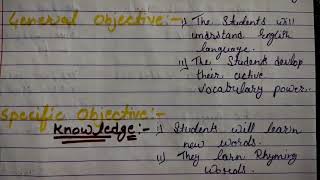 General Objective:- i) The Students will
understand English
language.
ii) The Students devlop
their active
vocabulary power.
Specific Objective:-
Knowledge:- i) Students will learn
new words.
ii) They larn Rhyming
Words.